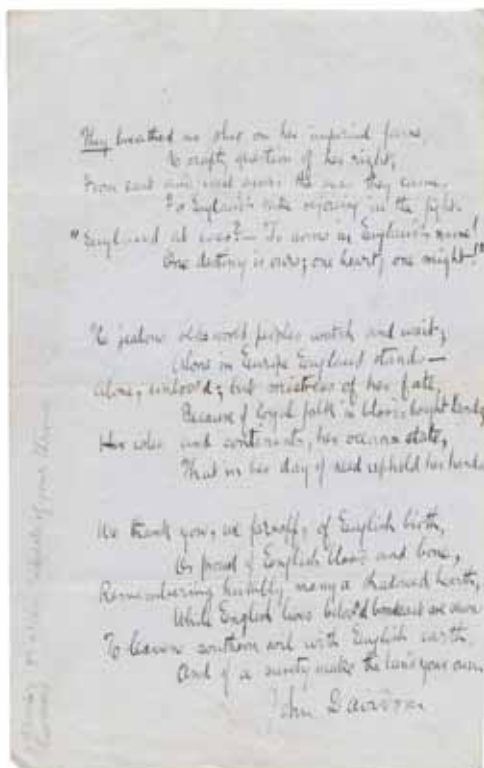 They breathed no slur on her imperial fame,
No crafty question of her right;
From east and west across the sea they came,
For England's sake rejoicing in the fight.
"England at war?— To arms in England's name!
One destiny is ours; one heart, one might!"
Ye jealous old-world peoples watch and wait;
Alone in Europe England stands—
Alone, unlov'd; but mistress of her fate,
Because of loyal folk in blood-bought lands,
Her isles and continents, her ocean state,
That in her day of need uphold her hands.
We thank you, we far off, of English birth,
Or proud of English blood and bone,
Remembering many a hearth,
While English lives belov'd
To leaven southern soil with English earth,
And of a surety make the land your own.
John Davidson